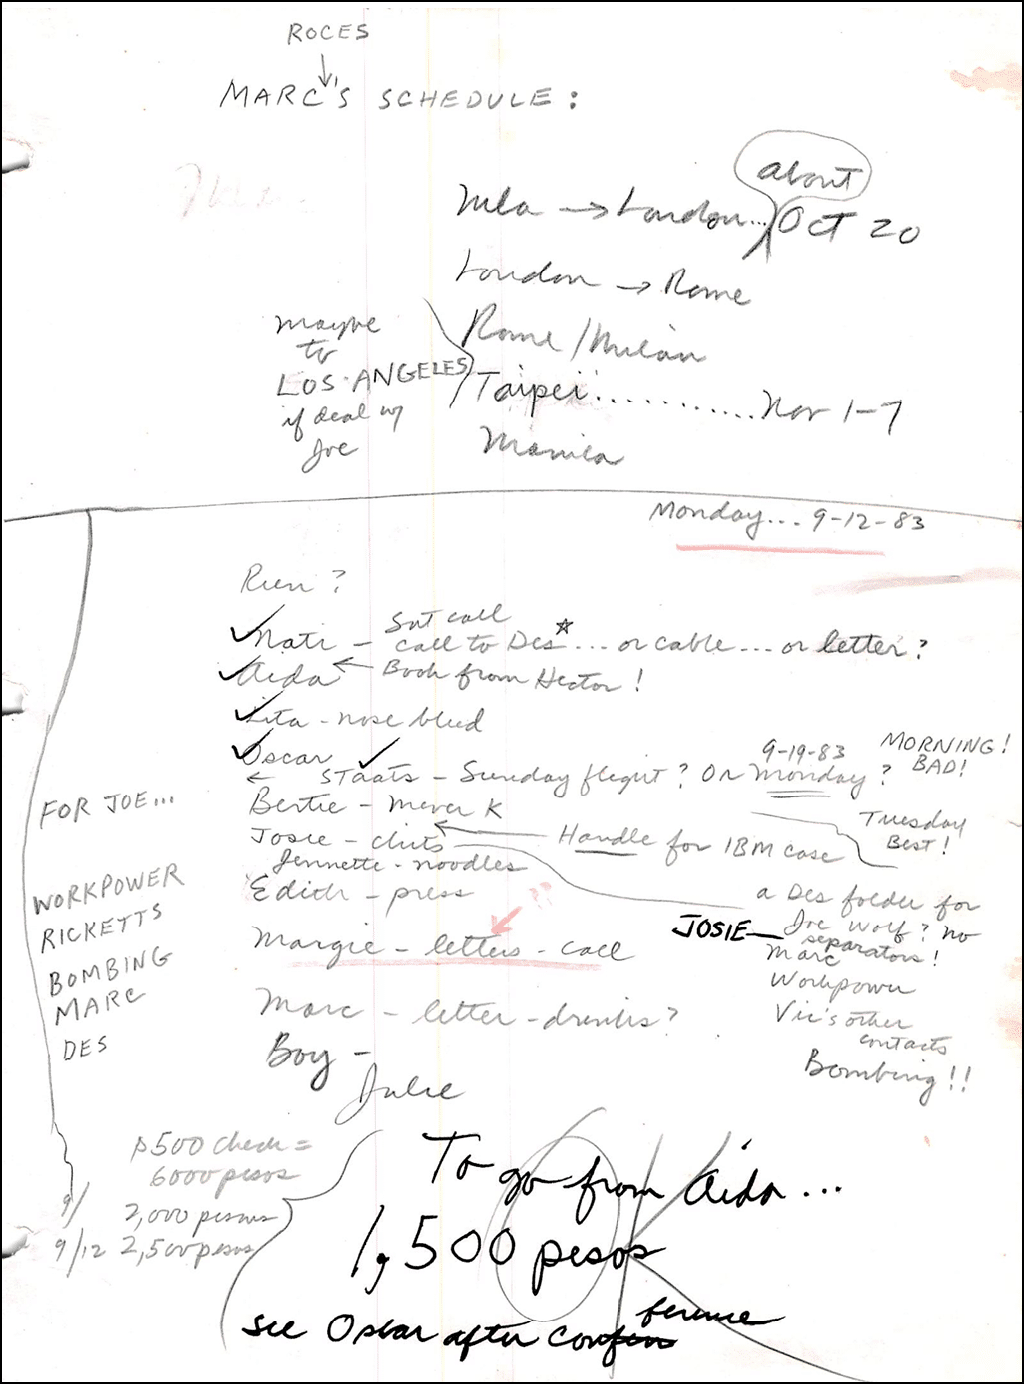 ROCES
MARC'S SCHEDULE:
about
Mla → London... Oct 20
London → Rome
Rome/Milan
maybe
to
LOS ANGELES
if deal w/
Joe
Taipei............Nov 1-7
Manila
Monday... 9-12-83
Run?
✓ Nati - Sat call
call to Des ☆ ... or cable... or letter?
✓ Aida ← Book from Hector!
✓ Lita - nose bleed
✓ Oscar ✓
← STAATS - Sunday flight? OR Monday?
9-19-83
MORNING!
BAD!
Tuesday
Best!
Bertie - Mever K
Josie - chits ← Handle for IBM case
Jennette - noodles
Edith - press
Margie - letters - call
Marc - letter - drinks?
Boy -
Julie
a Des folder for
JOSIE — Joe Wolf? no
separators!
Marc
Workpower
Vic's other
contacts
Bombing!!
FOR JOE...
WORKPOWER
RICKETTS
BOMBING
MARC
DES
$500 check =
6000 pesos
9/ 2,000 pesos
9/12 2,500 pesos
To go from Aida...
1,500 pesos
see Oscar after conference